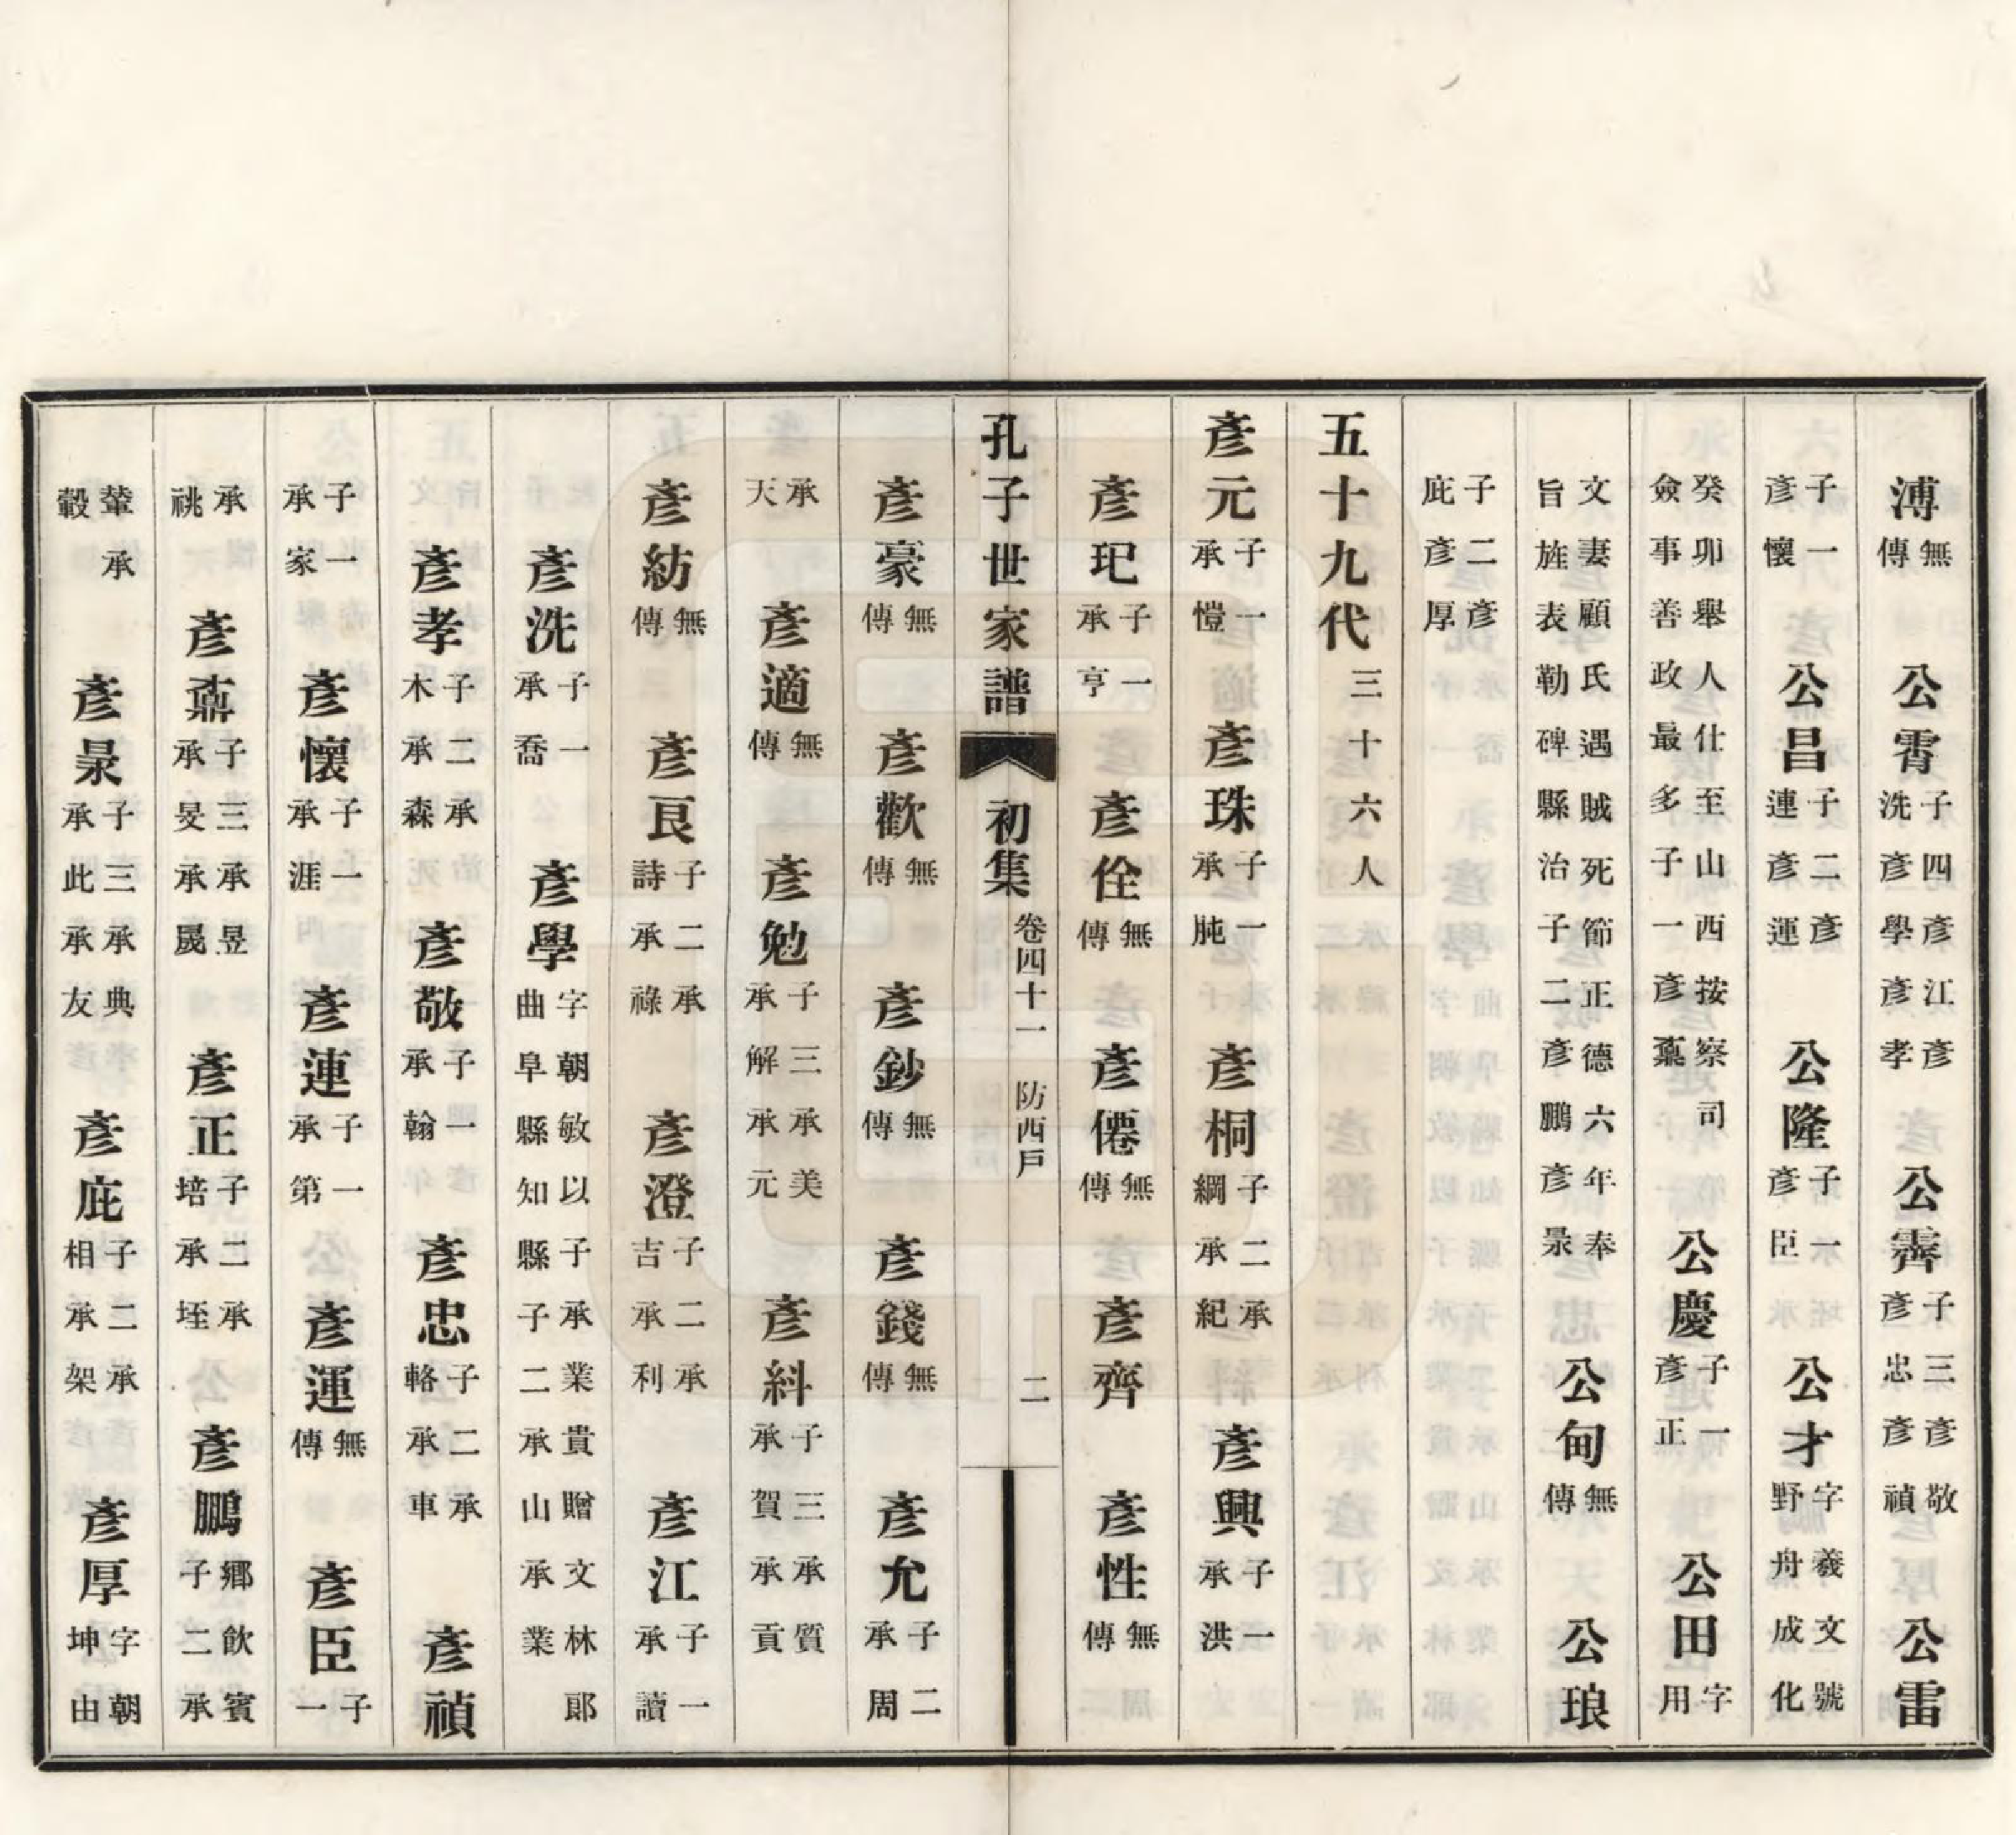 溥無傳　公霄子四彥江彥洗彥學彥孝　公霽子三彥敬彥忠彥禎　公雷
子一彥懷　公昌子二彥連彥運　公隆子一彥臣　公才字羲文號野舟成化
癸卯舉人仕至山西按察司僉事善政最多子一彥鼒　公慶子一彥正　公田字用
文妻顧氏遇賊死節正德六年奉旨旌表勒碑縣治子二彥鵬彥彔　公甸無傳　公琅
子二彥庇彥厚
五十九代三十六人
彥元子一承愷　彥珠子一承肫　彥桐子二承綱承紀　彥興子一承洪
彥玘子一承亨　彥佺無傳　彥僊無傳　彥齊　彥性無傳
孔子世家譜　初集　卷四十一　防西戶　二
彥豪無傳　彥歡無傳　彥鈔無傳　彥錢無傳　彥允子二承周
承天　彥適無傳　彥勉子三承美承解承元　彥紏子三承質承賀承貢
彥紡無傳　彥艮子二承詩承祿　彥澄子二承吉承利　彥江子一承讀
彥洗子一承喬　彥學字朝敏以子承業貴贈文林郎曲阜縣知縣子二承山承業
彥孝子二承木承森　彥敬子一承翰　彥忠子二承輅承車　彥禎
子一承家　彥懷子一承涯　彥連子一承第　彥運無傳　彥臣子一
承祧　彥鼒子三承昱承旻承晟　彥正子二承培承垤　彥鵬鄉飲賓子二承
輦承轂　彥彔子三承典承此承友　彥庇子二承相承架　彥厚字朝坤由